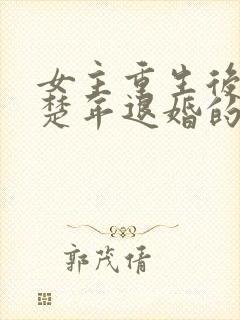 女主重生後
楚年退婚的
郭茂倩